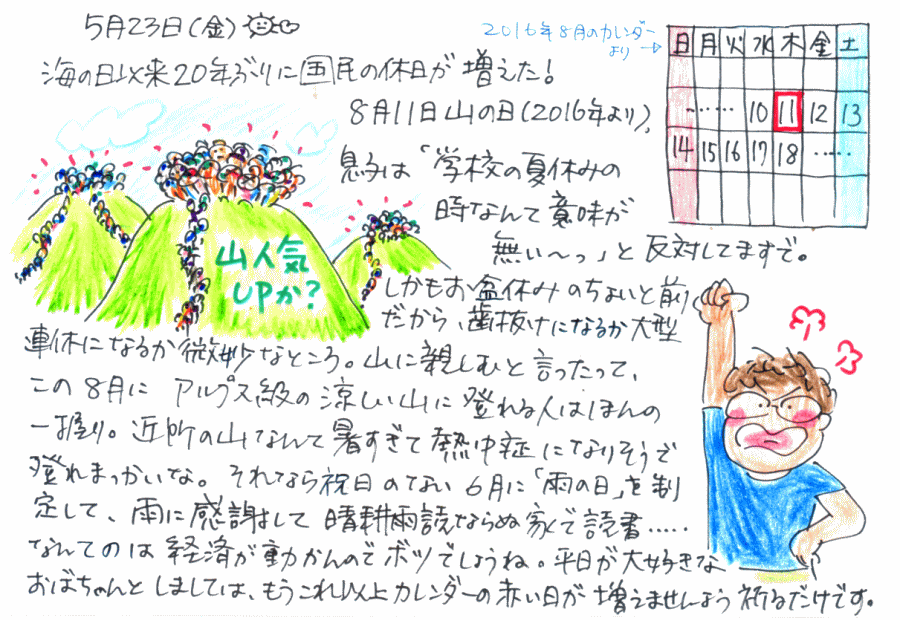 5月23日(金)
2016年8月のカレンダー
より→
海の日以来20年ぶりに国民の休日が増えた!
8月11日山の日(2016年より)、
日月火水木金土
……10 11 12 13
14 15 16 17 18 ……
息子は「学校の夏休みの
時なんて意味が
無い〜っ」と反対してますで。
山人気
UPか?
しかもお盆休みのちょいと前
だから、歯抜けになるか大型
連休になるか微妙なところ。山に親しむと言ったって、
この8月にアルプス級の涼しい山に登れる人はほんの
一握り。近所の山なんて暑すぎて熱中症になりそうで
登れまっかいな。それなら祝日のない6月に「雨の日」を制
定して、雨に感謝して晴耕雨読ならぬ家で読書……
なんてのは経済が動かんのでボツでしょうね。平日が大好きな
おばちゃんとしましては、もうこれ以上カレンダーの赤い日が増えませんよう祈るだけです。